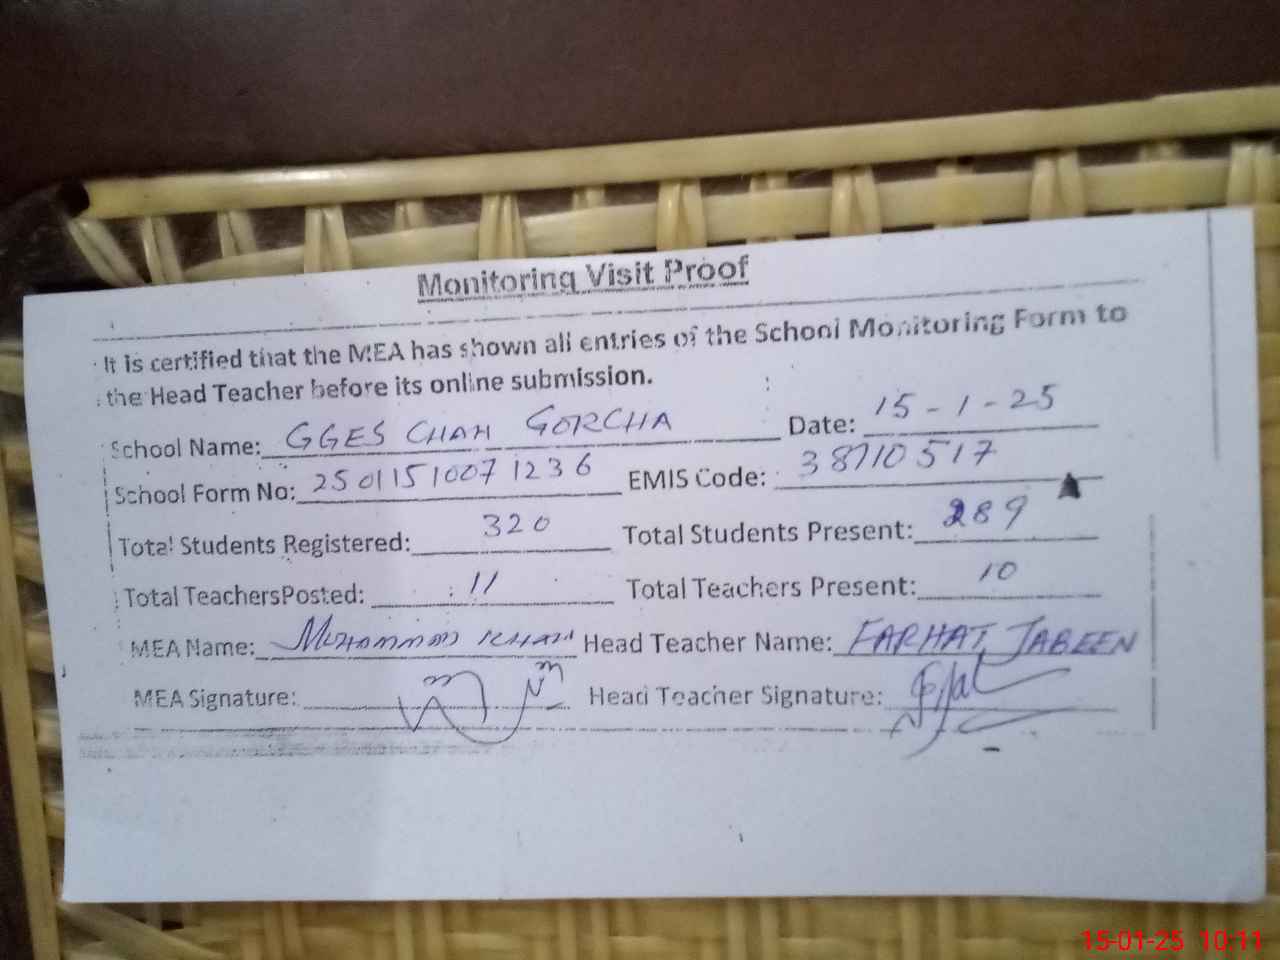 Monitoring Visit Proof
It is certified that the MEA has shown all entries of the School Monitoring Form to
the Head Teacher before its online submission.
School Name: GGES CHAH GORCHA Date: 15-1-25
School Form No: 25011510071236 EMIS Code: 38710517
Total Students Registered: 320 Total Students Present: 289
Total TeachersPosted: 11 Total Teachers Present: 10
MEA Name: MUHAMMAD KHAN Head Teacher Name: FARHAT JABEEN
MEA Signature: Head Teacher Signature:
15-01-25 10:11